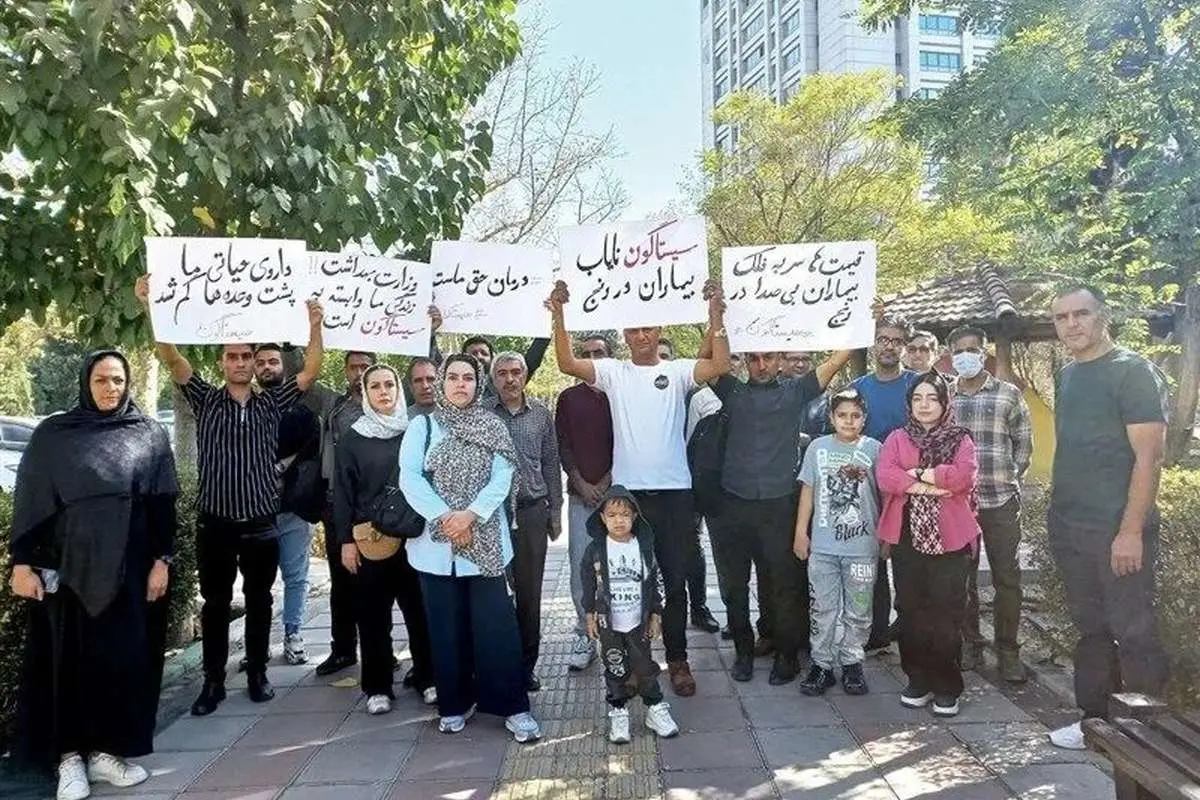 داروی حیاتی ما
پشت وعده ها گم شد
سیستاگون
وزارت بهداشت !!
زندگی ما وابسته به
سیستاگون است
درمان حق ماست
سیستاگون نایاب
بیماران در رنج
قیمت ها سر به فلک
بیماران بی صدا در
رنج
#سیستاگون
Black